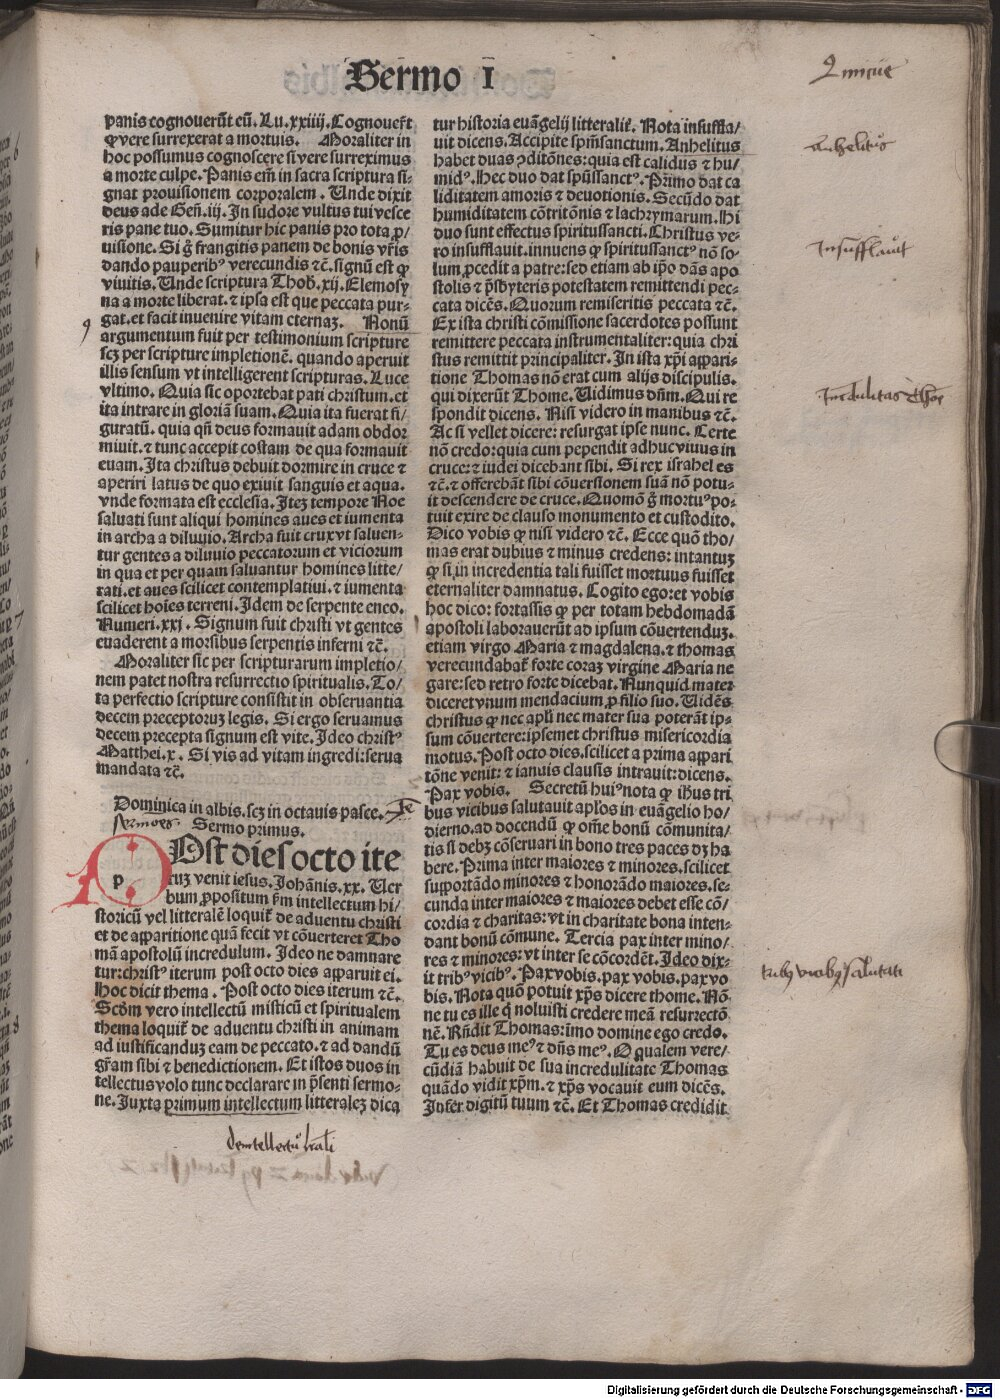 Sermo I
panis cognouerūt eū. Lu. xxiiij. Cognouer̄t
ꝙ vere surrexerat a mortuis. Moraliter in
hoc possumus cognoscere si vere surreximus
a morte culpe. Panis em̄ in sacra scriptura si-
gnat prouisionem corporalem. Unde dixit
deus ade Gen̄. iij. In sudore vultus tui vesce
ris pane tuo. Sumitur hic panis pro tota ꝓ/
uisione. Si g̊ frangitis panem de bonis vr̄is
dando pauperibꝰ verecundis ⁊c̄. signū est ꝙ
viuitis. Unde scriptura Thob. xij. Elemosy
na a morte liberat. ⁊ ipsa est que peccata pur-
gat. et facit inuenire vitam eternaꝫ. Nonū
argumentum fuit per testimonium scripture
scꝫ per scripture impletionē. quando aperuit
illis sensum vt intelligerent scripturas. Luce
vltimo. Quia sic oportebat pati christum. et
ita intrare in gloriā suam. Quia ita fuerat fi/
guratū. quia qn̄ deus formauit adam obdor
miuit. ⁊ tunc accepit costam de qua formauit
euam. Ita christus debuit dormire in cruce ⁊
aperiri latus de quo exiuit sanguis et aqua.
vnde formata est ecclesia. Iteꝫ tempore Noe
saluati sunt aliqui homines aues et iumenta
in archa a diluuio. Archa fuit crux vt saluen-
tur gentes a diluuio peccatorum et viciorum
in qua et per quam saluantur homines litte/
rati. et aues scilicet contemplatiui. ⁊ iumenta
scilicet hoīes terreni. Idem de serpente eneo.
Numeri. xxj. Signum fuit christi vt gentes
euaderent a morsibus serpentis inferni ⁊c̄.
Moraliter sic per scripturarum impletio/
nem patet nostra resurrectio spiritualis. To/
ta perfectio scripture consistit in obseruantia
decem preceptoruꝫ legis. Si ergo seruamus
decem precepta signum est vite. Ideo christꝰ
Matthei. x. Si vis ad vitam ingredi: serua
mandata ⁊c̄.
Dominica in albis. scꝫ in octauis pasce.
sermoēs Sermo primus.
POst dies octo ite
ruꝫ venit iesus. Johānis. xx. Uer
bum ꝓpositum ẜm intellectum hi/
storicū vel litteralē loquit̄ de aduentu christi
et de apparitione quā fecit vt cōuerteret Tho
mā apostolū incredulum. Ideo ne damnare
tur: christꝰ iterum post octo dies apparuit ei.
Hoc dicit thema. Post octo dies iterum ⁊c̄.
Scd̄m vero intellectū misticū et spiritualem
thema loquit̄ de aduentu christi in animam
ad iustificanduꝫ eam de peccato. ⁊ ad dandū
gr̄am sibi ⁊ benedictionem. Et istos duos in
tellectus volo tunc declarare in p̄senti sermo-
ne. Iuxta primum intellectum litteraleꝫ dica
tur historia euāgelij litteralit̄. Nota insuffla/
uit dicens. Accipite spm̄ sanctum. Anhelitus
habet duas ꝯditōnes: quia est calidus ⁊ hu/
midꝰ. Hec duo dat spūssanctꝰ. Primo dat ca
liditatem amoris ⁊ deuotionis. Secūdo dat
humiditatem cōtritōnis ⁊ lachrymarum. Hi
duo sunt effectus spiritussancti. Christus ve-
ro insufflauit. innuens ꝙ spiritussanctꝰ nō so-
lum ꝓcedit a patre: sed etiam ab ip̄o dās apo
stolis ⁊ p̄sbyteris potestatem remittendi pec-
cata dicēs. Quorum remiseritis peccata ⁊c̄.
Ex ista christi cōmissione sacerdotes possunt
remittere peccata instrumentaliter: quia chri
stus remittit principaliter. In ista xp̄i appari-
tione Thomas nō erat cum alijs discipulis.
qui dixerūt Thome. Uidimus dn̄m. Qui re
spondit dicens. Nisi videro in manibus ⁊c̄.
Ac si vellet dicere: resurgat ipse nunc. Certe
nō credo: quia cum pependit adhuc viuus in
cruce: ⁊ iudei dicebant sibi. Si rex israhel es
⁊c̄. ⁊ offerebāt sibi cōuersionem suā nō potu-
it descendere de cruce. Quomō g̊ mortuꝰ po-
tuit exire de clauso monumento et custodito.
Dico vobis ꝙ nisi videro ⁊c̄. Ecce quō tho/
mas erat dubius ⁊ minus credens: intantuꝫ
ꝙ si in incredentia tali fuisset mortuus fuisset
eternaliter damnatus. Cogito ego: et vobis
hoc dico: fortassis ꝙ per totam hebdomadā
apostoli laborauerūt ad ipsum cōuertenduꝫ.
etiam virgo Maria ⁊ magdalena. ⁊ thomas
verecundabat̄ forte coraꝫ virgine Maria ne
gare: sed retro forte dicebat. Nunquid mater
diceret vnum mendacium ꝓ filio suo. Uidēs
christus ꝙ nec apl̄i nec mater sua poterāt ip-
sum cōuertere: ipsemet christus misericordia
motus. Post octo dies. scilicet a prima appari
tōne venit: ⁊ ianuis clausis intrauit: dicens.
Pax vobis. Secretū huiꝰ nota ꝙ ih̄us tri
bus vicibus salutauit apl̄os in euāgelio ho/
dierno. ad docendū ꝙ om̄e bonū cōmunita/
tis si debꝫ cōseruari in bono tres paces dꝫ ha
bere. Prima inter maiores ⁊ minores. scilicet
supportādo minores ⁊ honorādo maiores. se-
cunda inter maiores ⁊ maiores debet esse cō/
cordia ⁊ charitas: vt in charitate bona inten-
dant bonū cōmune. Tercia pax inter mino/
res ⁊ minores: vt inter se cōcordēt. Ideo dix-
it tribꝰ vicibꝰ. Pax vobis. pax vobis. pax vo
bis. Nota quō potuit xp̄s dicere thome. Nō
ne tu es ille q̄ noluisti credere meā resurrectō
nē. Rn̄dit Thomas: imo domine ego credo.
Tu es deus meꝰ ⁊ dn̄s meꝰ. O qualem vere/
cūdiā habuit de sua incredulitate Thomas
quādo vidit xp̄m. ⁊ xp̄s vocauit eum dicēs.
Infer digitū tuum ⁊c̄. Et Thomas credidit
anhelitus
Insufflauit
tribꝫ vicibꝫ salutati
Digitalisierung gefördert durch die Deutsche Forschungsgemeinschaft - DFG